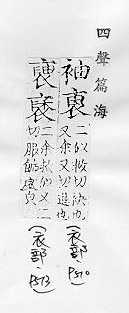 四聲篇海
袖褎二似救切袂也
又余又切進也
(衣部·P510)
二余救似又二
切服飾盛皃
(衣部·P513)